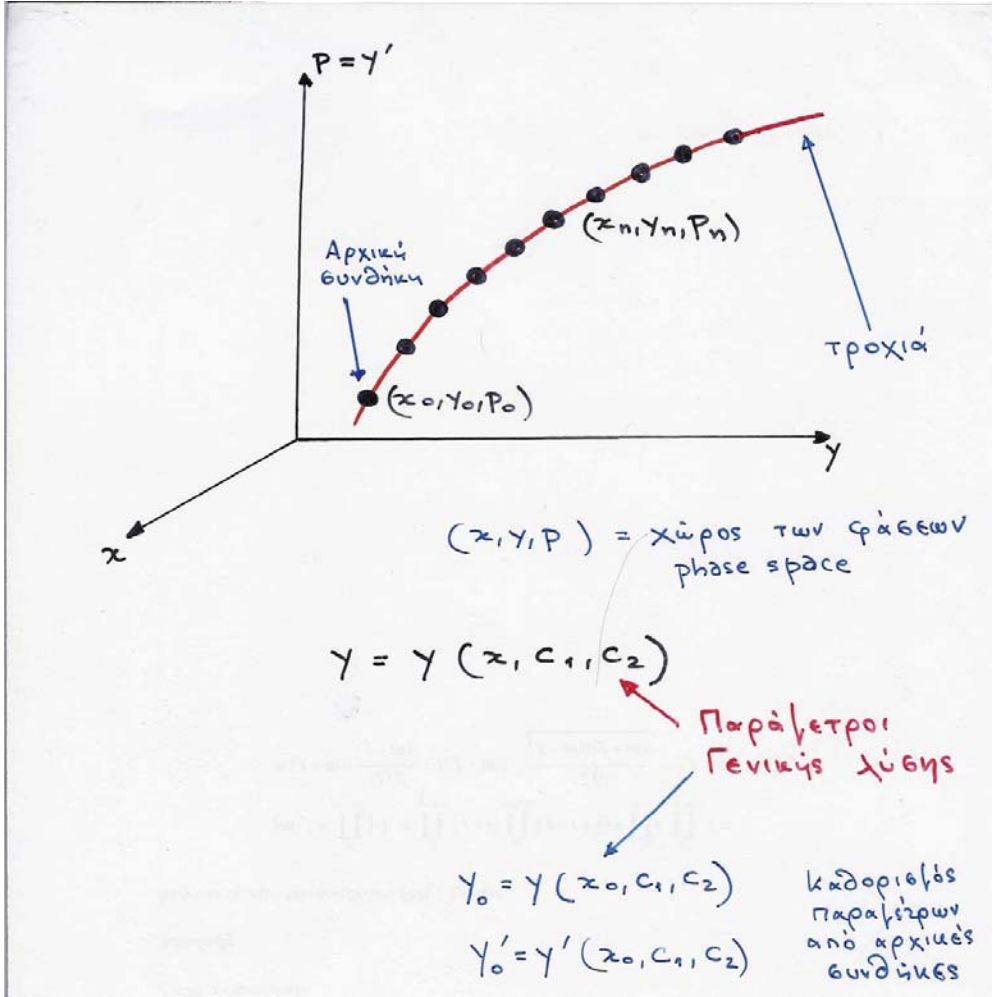 P = Y'
Αρχική
συνθήκη
(xn, Yn, Pn)
τροχιά
(x0, Y0, P0)
Y
x
(x, Y, P) = χώρος των φάσεων
phase space
Y = Y (x, C1, C2)
Παράμετροι
Γενικής λύσης
Y0 = Y (x0, C1, C2)
Y0' = Y' (x0, C1, C2)
καθορισμός
παραμέτρων
από αρχικές
συνθήκες